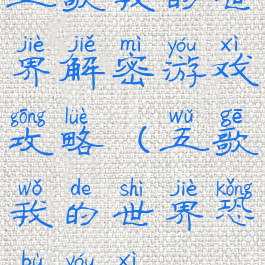 五歌我的世
jiè jiě mì yóu xì
界解密游戏
gōng lüè wǔ gē
攻略(五歌
wǒ de shì jiè kǒng
我的世界恐
bù yóu xì